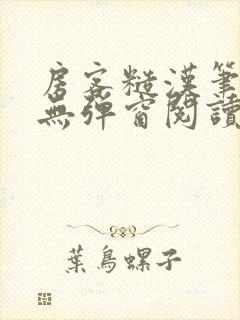 房客糙漢筆
無彈窗閱讀
葉鳥螺子